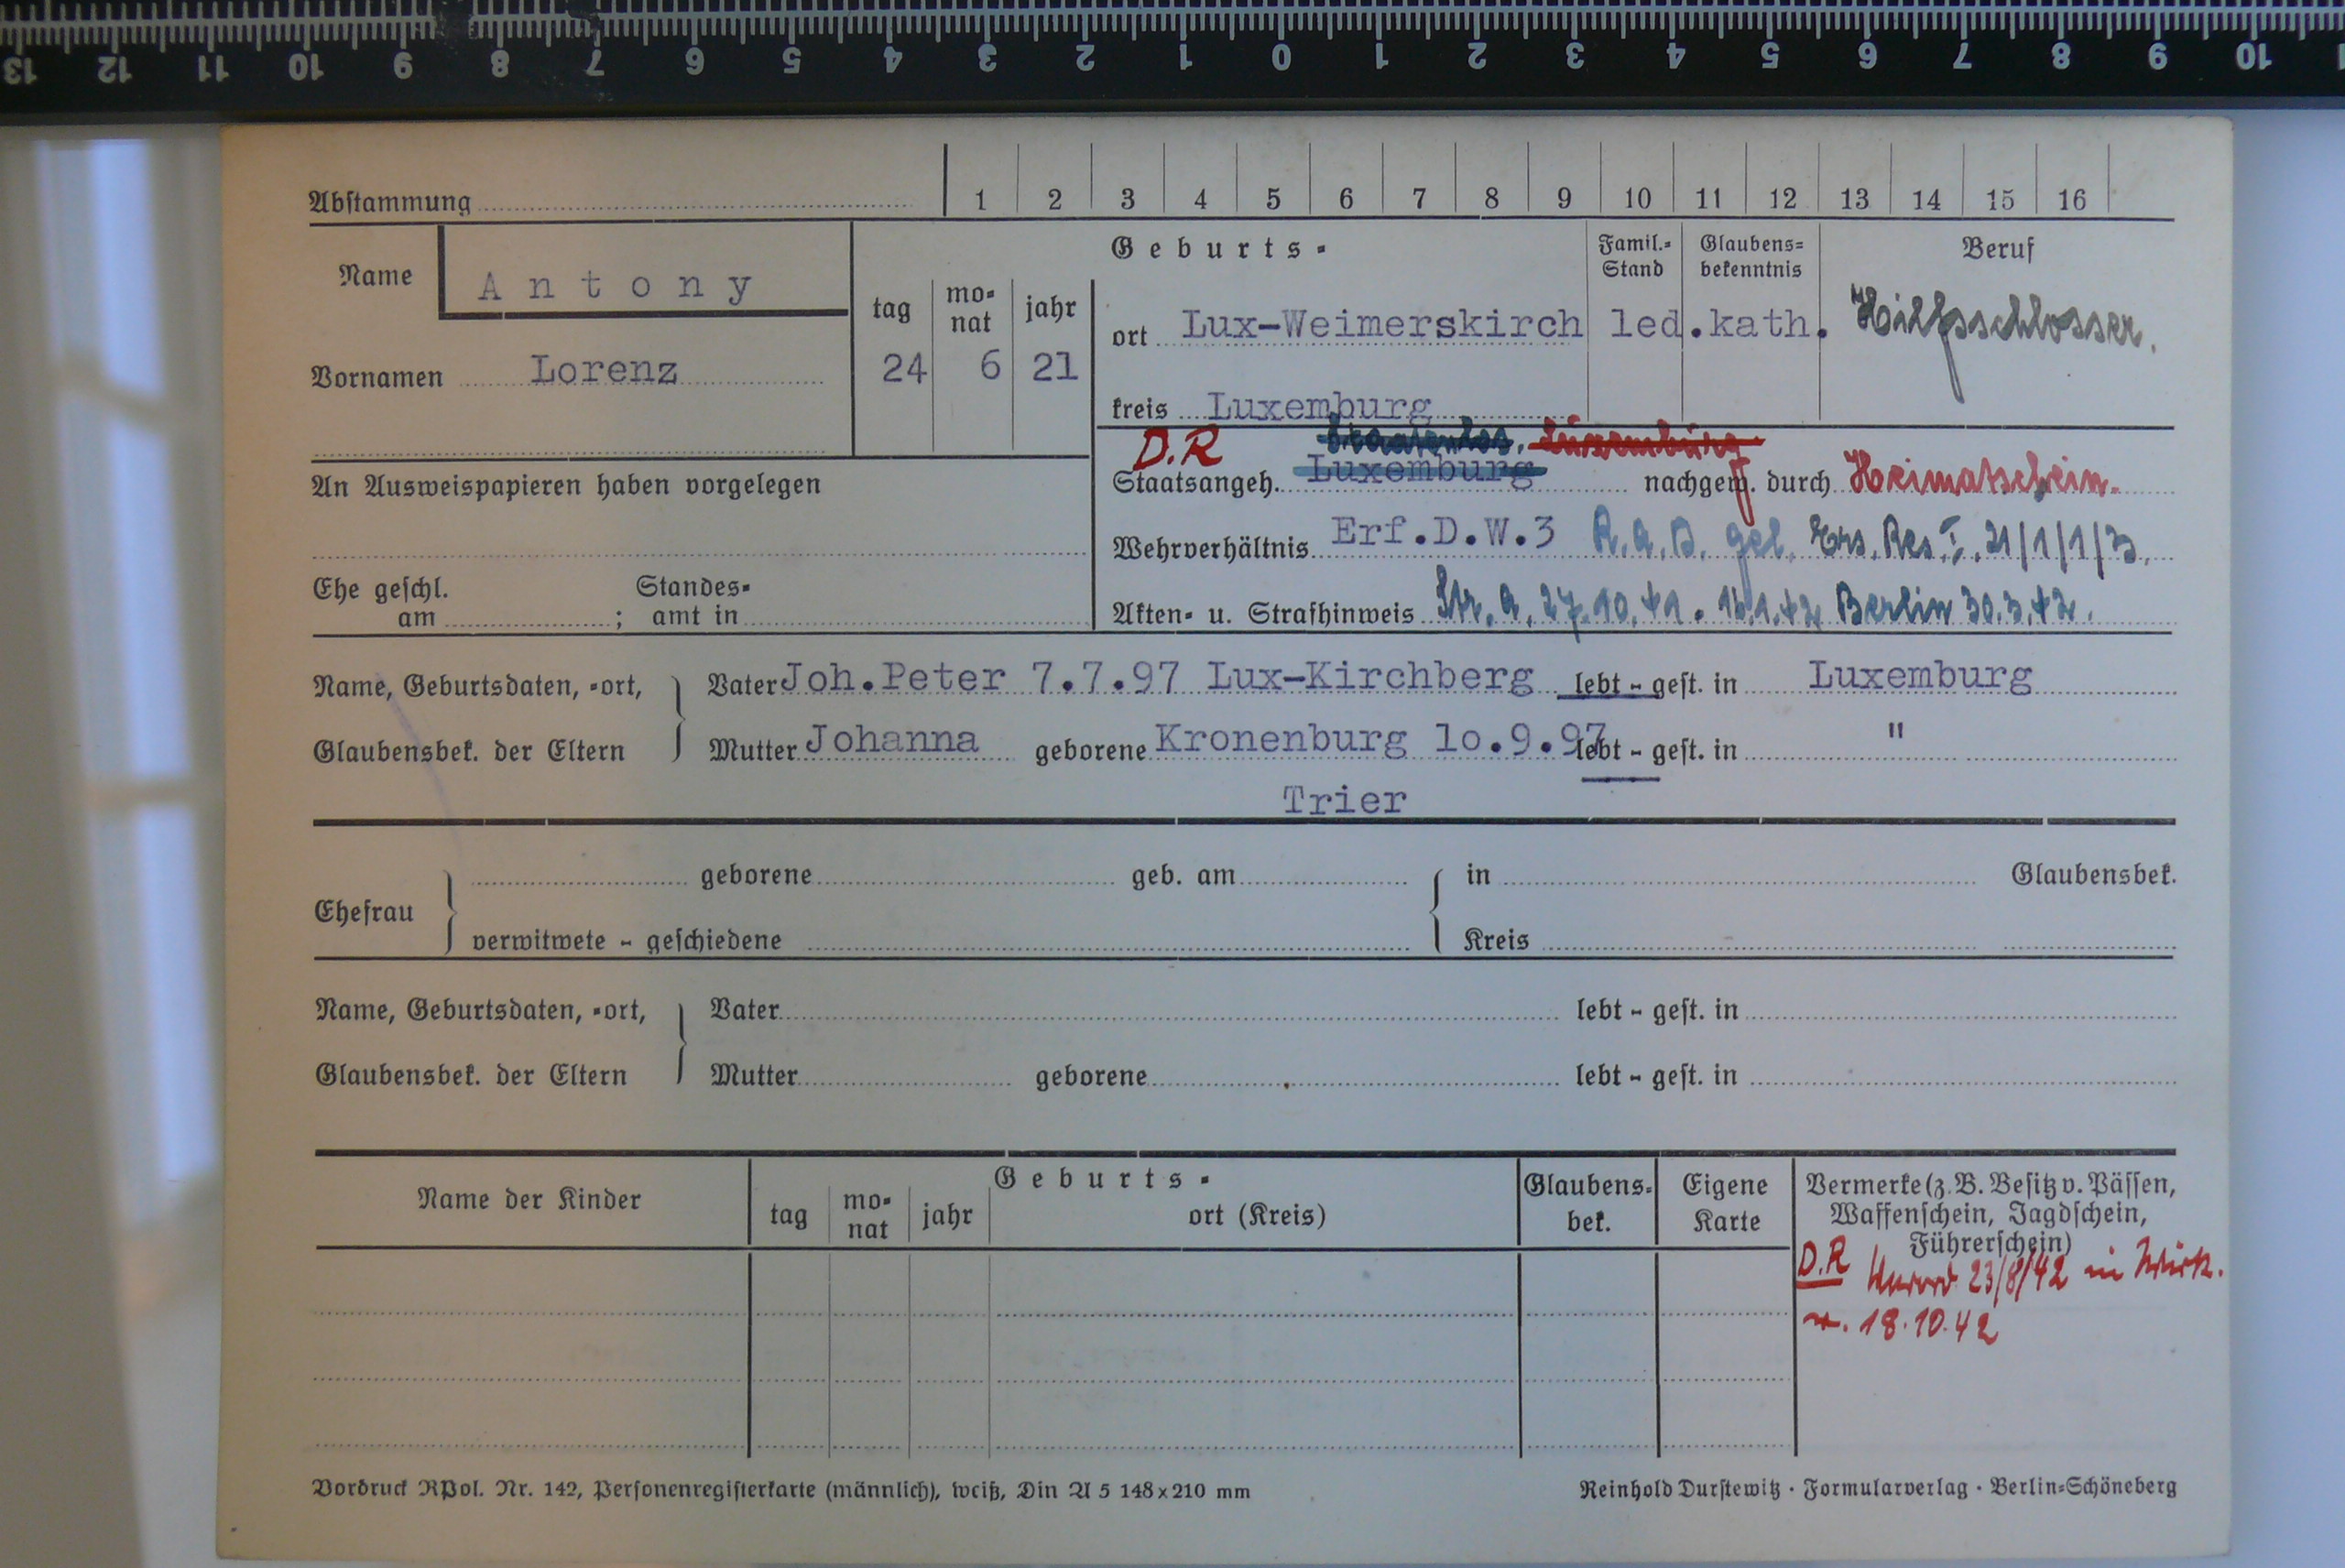 13 12 11 10 9 8 7 6 5 4 3 2 1 0 1 2 3 4 5 6 7 8 9 10
Abstammung 1 2 3 4 5 6 7 8 9 10 11 12 13 14 15 16
Name Antony
Vornamen Lorenz
Geburts-
tag monat jahr
24 6 21
ort Lux-Weimerskirch
kreis Luxemburg
Famil.-Stand
led.
Glaubensbekenntnis
kath.
Beruf
Hilfsschlosser.
An Ausweispapieren haben vorgelegen
Ehe geschl. am ; Standesamt in
D.R Staatenlos. Luxemburg
Staatsangeh. Luxemburg nachgew. durch Heimatschein.
Wehrverhältnis Erf.D.W.3 R.A.D. gel. Ers. Res. I. 21/1/1/3.
Akten- u. Strafhinweis Str. A. 27.10.41. 13.1.42 Berlin 30.3.42.
Name, Geburtsdaten, -ort, Vater Joh.Peter 7.7.97 Lux-Kirchberg lebt - gest. in Luxemburg
Glaubensbek. der Eltern Mutter Johanna geborene Kronenburg 1o.9.97 lebt - gest. in "
Trier
Ehefrau geborene geb. am in Glaubensbek.
verwitwete - geschiedene Kreis
Name, Geburtsdaten, -ort, Vater lebt - gest. in
Glaubensbek. der Eltern Mutter geborene lebt - gest. in
Name der Kinder
Geburts-
tag monat jahr ort (Kreis)
Glaubensbek.
Eigene Karte
Vermerke (z. B. Besitz v. Pässen,
Waffenschein, Jagdschein,
Führerschein)
D.R 23/8/42 in Wirk.
v. 18.10.42
Vordruck RPol. Nr. 142, Personenregisterkarte (männlich), weiß, Din A 5 148x210 mm
Reinhold Durstewitz · Formularverlag · Berlin-Schöneberg